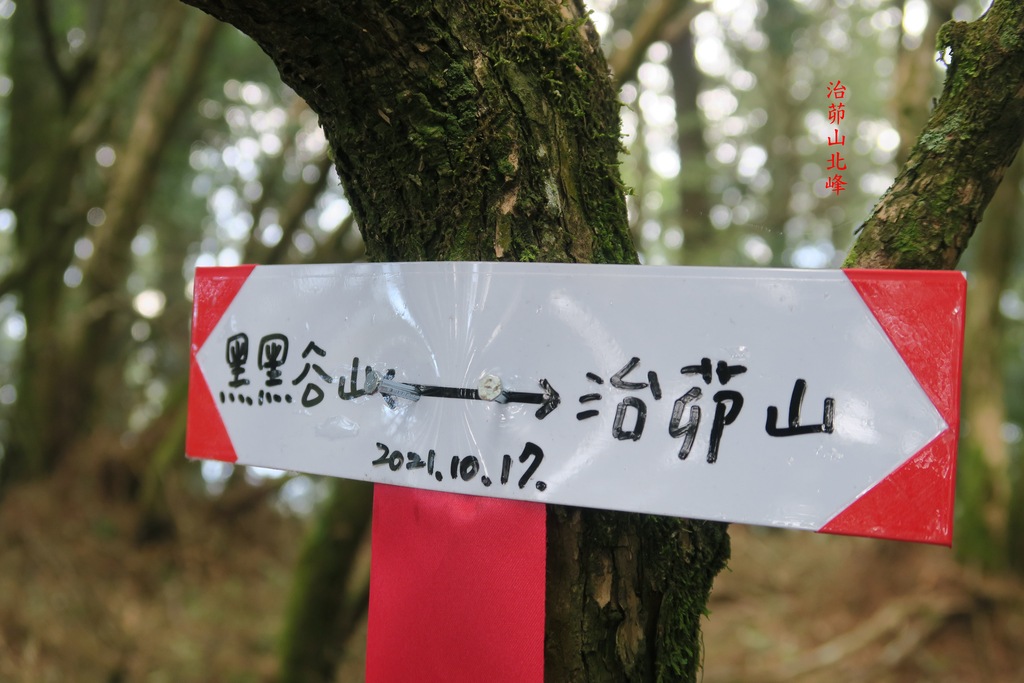 治茆山北峰
黑黑谷山 ←→ 治茆山
2021.10.17.